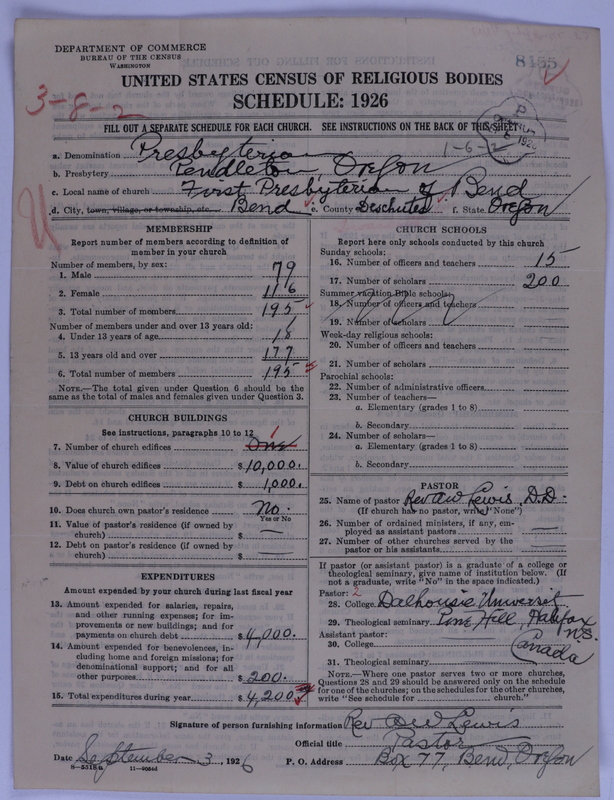 DEPARTMENT OF COMMERCE
BUREAU OF THE CENSUS
WASHINGTON
8455
UNITED STATES CENSUS OF RELIGIOUS BODIES
SCHEDULE: 1926
3-8-2
FILL OUT A SEPARATE SCHEDULE FOR EACH CHURCH. SEE INSTRUCTIONS ON THE BACK OF THIS SHEET
1-6-12
a. Denomination Presbyterian
b. Presbytery Pendleton, Oregon
c. Local name of church First Presbyterian of Bend
d. City, town, village, or township, etc. Bend e. County Deschutes f. State Oregon
MEMBERSHIP
Report number of members according to definition of
member in your church
Number of members, by sex:
1. Male 79
2. Female 116
3. Total number of members 195
Number of members under and over 13 years old:
4. Under 13 years of age 18
5. 13 years old and over 177
6. Total number of members 195
NOTE.—The total given under Question 6 should be the
same as the total of males and females given under Question 3.
CHURCH BUILDINGS
See instructions, paragraphs 10 to 12
1
7. Number of church edifices One
8. Value of church edifices $10,000.
9. Debt on church edifices $1,000.
10. Does church own pastor's residence No.
Yes or No
11. Value of pastor's residence (if owned by
church) $ —
12. Debt on pastor's residence (if owned by
church) $ —
EXPENDITURES
Amount expended by your church during last fiscal year
13. Amount expended for salaries, repairs,
and other running expenses; for im-
provements or new buildings; and for
payments on church debt $4,000.
14. Amount expended for benevolences, in-
cluding home and foreign missions; for
denominational support; and for all
other purposes $200.
15. Total expenditures during year $4,200
CHURCH SCHOOLS
Report here only schools conducted by this church
Sunday schools:
16. Number of officers and teachers 15
17. Number of scholars 200
Summer vacation Bible schools:
18. Number of officers and teachers
19. Number of scholars
Week-day religious schools:
20. Number of officers and teachers
21. Number of scholars
Parochial schools:
22. Number of administrative officers
23. Number of teachers—
a. Elementary (grades 1 to 8)
b. Secondary
24. Number of scholars—
a. Elementary (grades 1 to 8)
b. Secondary
PASTOR
25. Name of pastor Rev AW Lewis, D.D.
(If church has no pastor, write "None")
26. Number of ordained ministers, if any, em-
ployed as assistant pastors —
27. Number of other churches served by the
pastor or his assistants —
If pastor (or assistant pastor) is a graduate of a college or
theological seminary, give name of institution below. (If
not a graduate, write "No" in the space indicated.)
Pastor: 2
28. College Dalhousie University
29. Theological seminary Pine Hill, Halifax
N.S.
Assistant pastor:
30. College Canada
31. Theological seminary
NOTE.—Where one pastor serves two or more churches,
Questions 28 and 29 should be answered only on the schedule
for one of the churches; on the schedules for the other churches,
write "See schedule for ........ church."
Signature of person furnishing information Rev AW Lewis
Official title Pastor
Date September 3, 1926 P. O. Address Box 77, Bend, Oregon